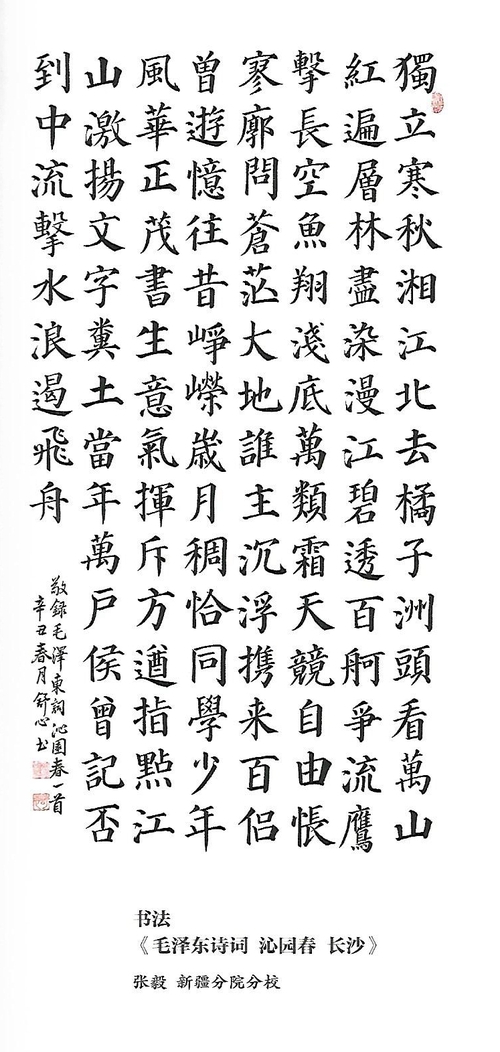 獨立寒秋湘江北去橘子洲頭看萬山
紅遍層林盡染漫江碧透百舸爭流鷹
擊長空魚翔淺底萬類霜天競自由悵
寥廓問蒼茫大地誰主沉浮携来百侶
曾遊憶往昔崢嶸歲月稠恰同學少年
風華正茂書生意氣揮斥方遒指點江
山激揚文字糞土當年萬戶侯曾記否
到中流擊水浪遏飛舟
敬錄毛澤東詞沁園春一首
辛丑春月舒心书
书法
《毛泽东诗词 沁园春 长沙》
张毅 新疆分院分校